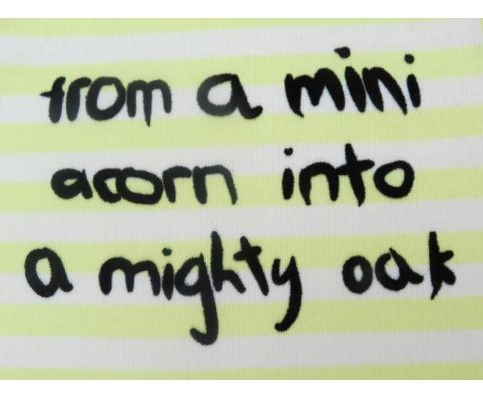 from a mini
acorn into
a mighty oak